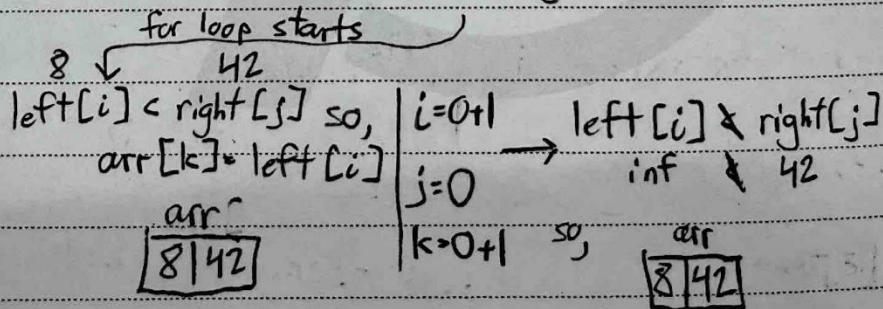 for loop starts
8 42
left[i] < right[j] so,
arr[k] = left[i]
arr
8|42
i=0+1
j=0
k=0+1 so,
left[i] ≮ right[j]
inf ≮ 42
arr
8|42